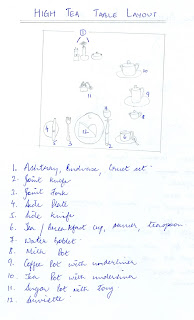 HIGH TEA TABLE LAYOUT
1
10
11
9
8
4
1. Ashtray, Budvase, Cruet set
2. Joint Knife
3. Joint Fork
4. Side Plate
5. Side Knife
6. Tea / Breakfast cup, saucer, teaspoon
7. Water Goblet
8. Milk Pot
9. Coffee Pot with underliner
10. Tea Pot with underliner
11. Sugar Pot with Tong
12. Serviette